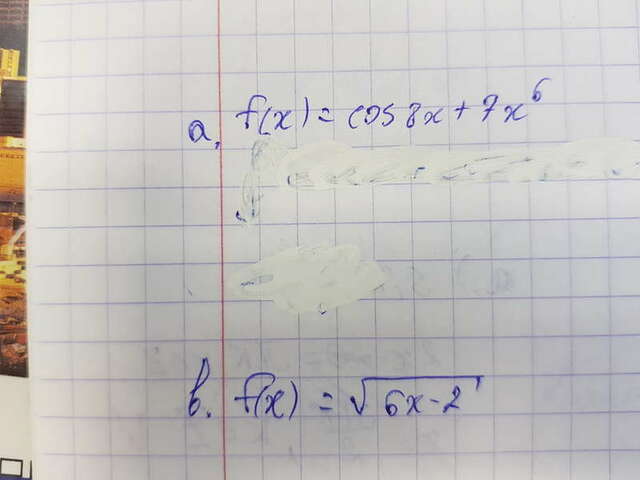 a, f(x) = cos 8x + 7x⁶
b. f(x) = √(6x-2)